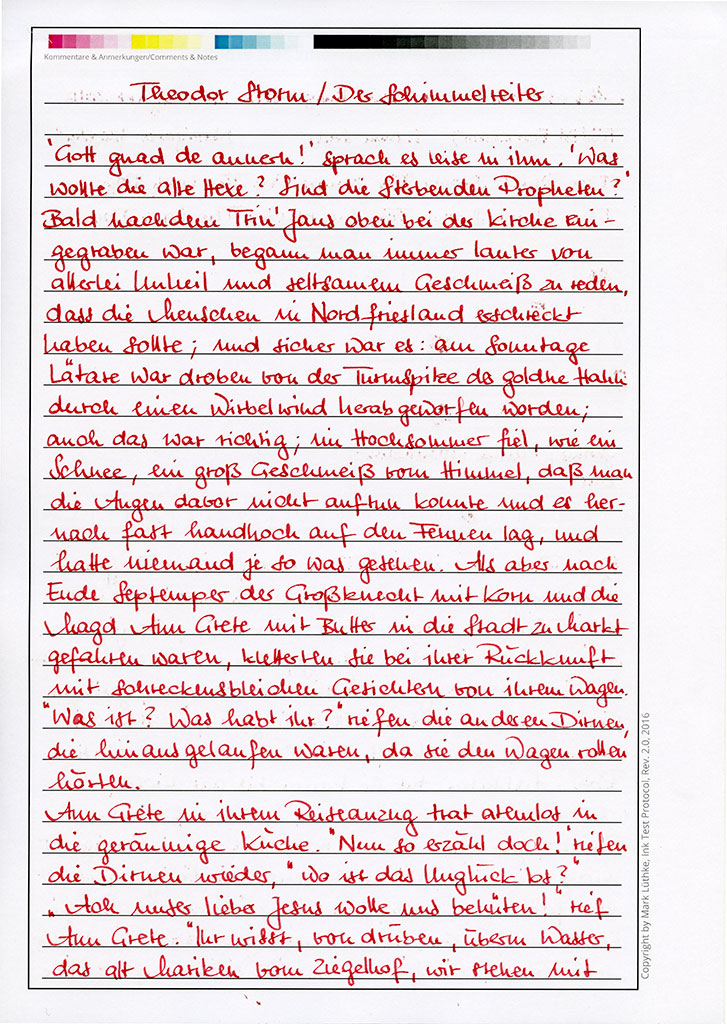 Kommentare & Anmerkungen/Comments & Notes
Theodor Storm / Der Schimmelreiter
'Gott gnad de annern!' sprach es leise in ihm. 'Was
wollte die alte Hexe? Sind die Sterbenden Propheten?'
Bald nachdem Trin' Jans oben bei der Kirche ein-
gegraben war, begann man immer lauter von
allerlei Unheil und seltsamem Geschmeiß zu reden,
dass die Menschen in Nordfriesland erschreckt
haben sollte; und sicher war es: am Sonntage
Lätare war droben von der Turmspitze der goldne Hahn
durch einen Wirbelwind herabgeworfen worden;
auch das war richtig; im Hochsommer fiel, wie ein
Schnee, ein groß Geschmeiß vom Himmel, daß man
die Augen davor nicht auftun konnte und es her-
nach fast handhoch auf den Fennen lag, und
hatte niemand je so was gesehen. Als aber nach
Ende Septemper der Großknecht mit Korn und die
Magd Ann Grete mit Butter in die Stadt zu Markt
gefahren waren, kletterten sie bei ihrer Rückkunft
mit schreckensbleichen Gesichtern von ihrem Wagen.
"Was ist? Was habt ihr?" riefen die anderen Dirnen,
die hinausgelaufen waren, da sie den Wagen rollen
hörten.
Ann Grete in ihrem Reiseanzug trat atemlos in
die geräumige Küche. "Nun so erzähl doch!" riefen
die Dirnen wieder, "wo ist das Unglück los?"
"Ach unser lieber Jesus wolle uns behüten!" rief
Ann Grete. "Ihr wisst, von drüben, überm Wasser,
das alt Mariken vom Ziegelhof, wir stehen mit
Copyright by Mark Lüthke, Ink Test Protocol, Rev. 2.0, 2016